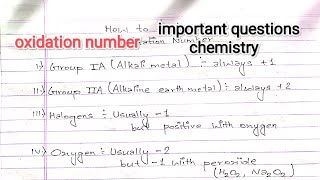 How to
important questions
oxidation number
chemistry
Number
i) Group IA (Alkali metal) :- always +1
ii) Group IIA (Alkaline earth metal) : always +2
iii) Halogens : Usually -1
but positive with oxygen
iv) Oxygen : Usually -2
but -1 with peroxide
(H₂O₂, Na₂O₂)